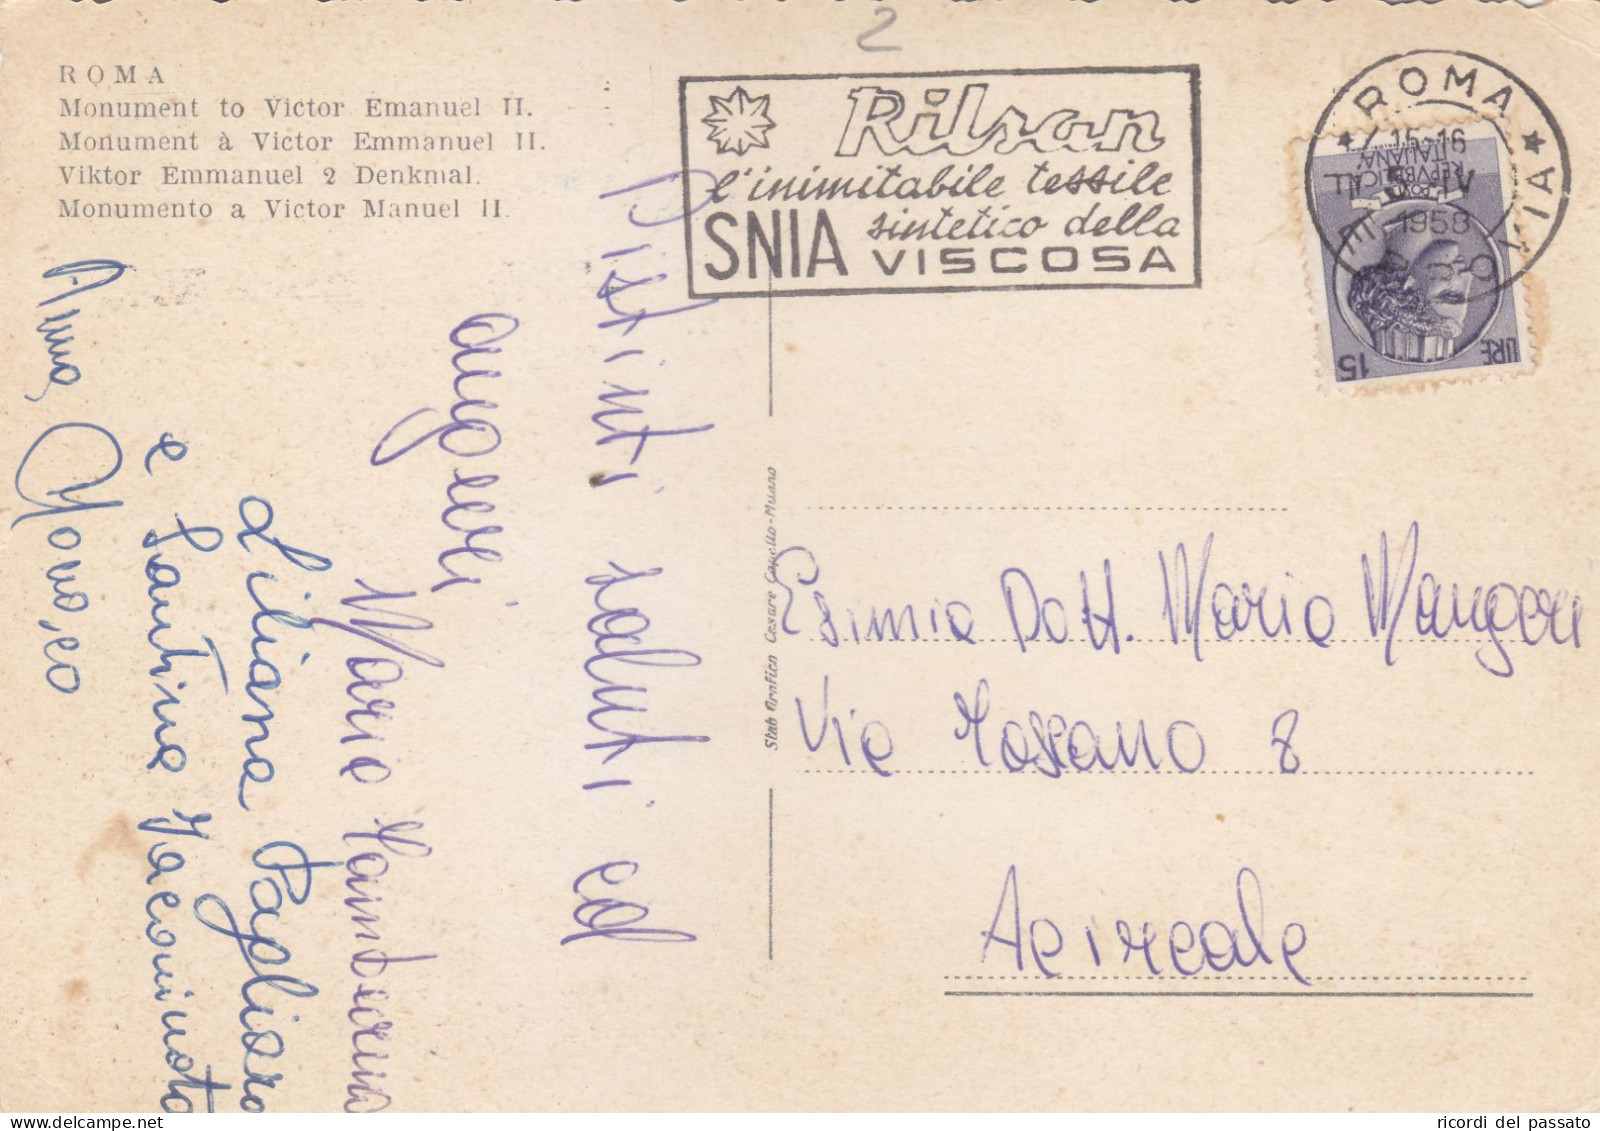 2
ROMA
Monument to Victor Emanuel II.
Monument à Victor Emmanuel II.
Viktor Emmanuel 2 Denkmal.
Monumento a Victor Manuel II.
Rilsan
l'inimitabile tessile
sintetico della
SNIA VISCOSA
ROMA
15-16
IV
1958
REPVBBLICA
ITALIANA
LIRE 15
Distinti saluti ed
auguri
Maria
Liliana
e Santina
Anna,
Stab Grafico Cesare Capello-Milano
Esimia Dott. Maria Mangeri
Via Toscano 8
Acireale
ricordi del passato